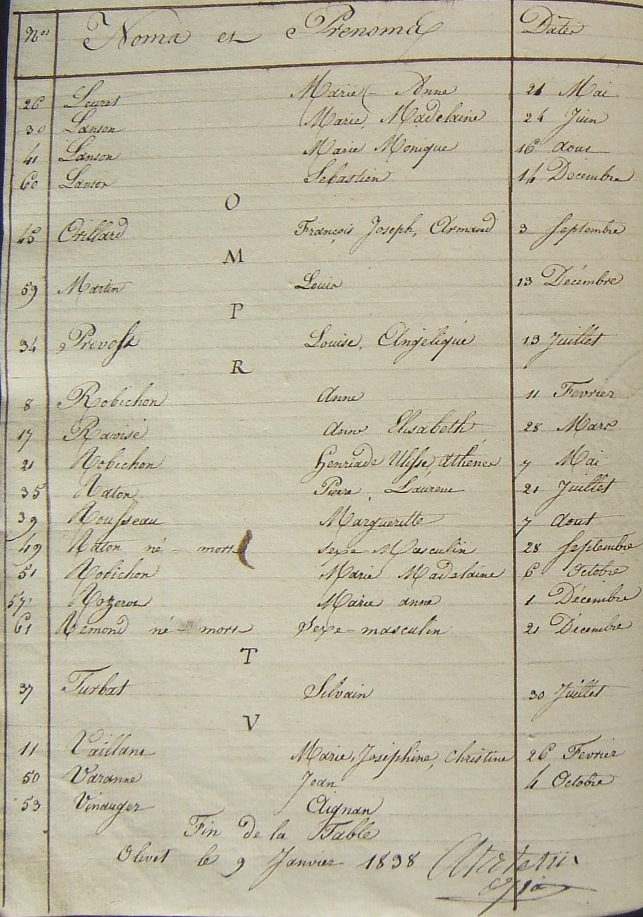 Nos Noms et Prenoms Dates
26 Leurot Marie - Anne 21 Mai
30 Lanson Marie, Madelaine 24 Juin
41 Lanson Marie Monique 16 aout
60 Lanson Sebastien 14 Decembre
O
45 Orillard François Joseph, Armand 3 Septembre
M
59 Martin Louis 13 Décembre
P
34 Prevost Louise, Angélique 13 Juillet
R
8 Robichon Anne 11 Fevrier
17 Ravisé Anne Elisabeth 28 Mars
21 Robichon Henriade Ulysse, Athénes 7 Mai
35 Raton Pierre, Laurent 21 Juillet
39 Rousseau Margueritte 7 Aout
49 Raton né - mort sexe Masculin 28 Septembre
51 Robichon Marie Madelaine 6 Octobre
57 Rozeron Marie anne 1 Décembre
61 Remond né - mort Sexe masculin 21 Décembre
T
37 Turbat Silvain 30 Juillet
V
11 Vaillant Marie, Joséphine, Christine 26 Fevrier
50 Varanne Jean 4 Octobre
53 Vinauger Aignan
Fin de la Table
Olivet le 9 Janvier 1838